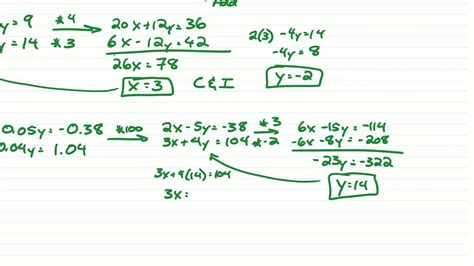 y = 9 *4 20x + 12y = 36
y = 14 *3 6x - 12y = 42
26x = 78
x = 3 C & I
2(3) - 4y = 14
-4y = 8
y = -2
0.05y = -0.38 *100 2x - 5y = -38 *3 6x - 15y = -114
0.04y = 1.04 3x + 4y = 104 *-2 -6x - 8y = -208
-23y = -322
y = 14
3x + 4(14) = 104
3x =